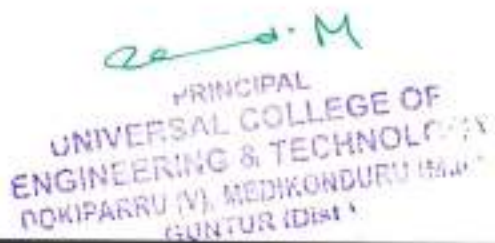 PRINCIPAL
UNIVERSAL COLLEGE OF
ENGINEERING & TECHNOLOGY
DOKIPARRU (V), MEDIKONDURU (M),
GUNTUR (Dist)